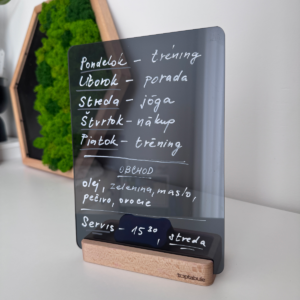 Pondelok - tréning
Utorok - porada
Streda - jóga
Štvrtok - nákup
Piatok - tréning
OBCHOD
olej, zelenina, maslo,
pečivo, ovocie
Servis - 15³⁰, streda
toptabule